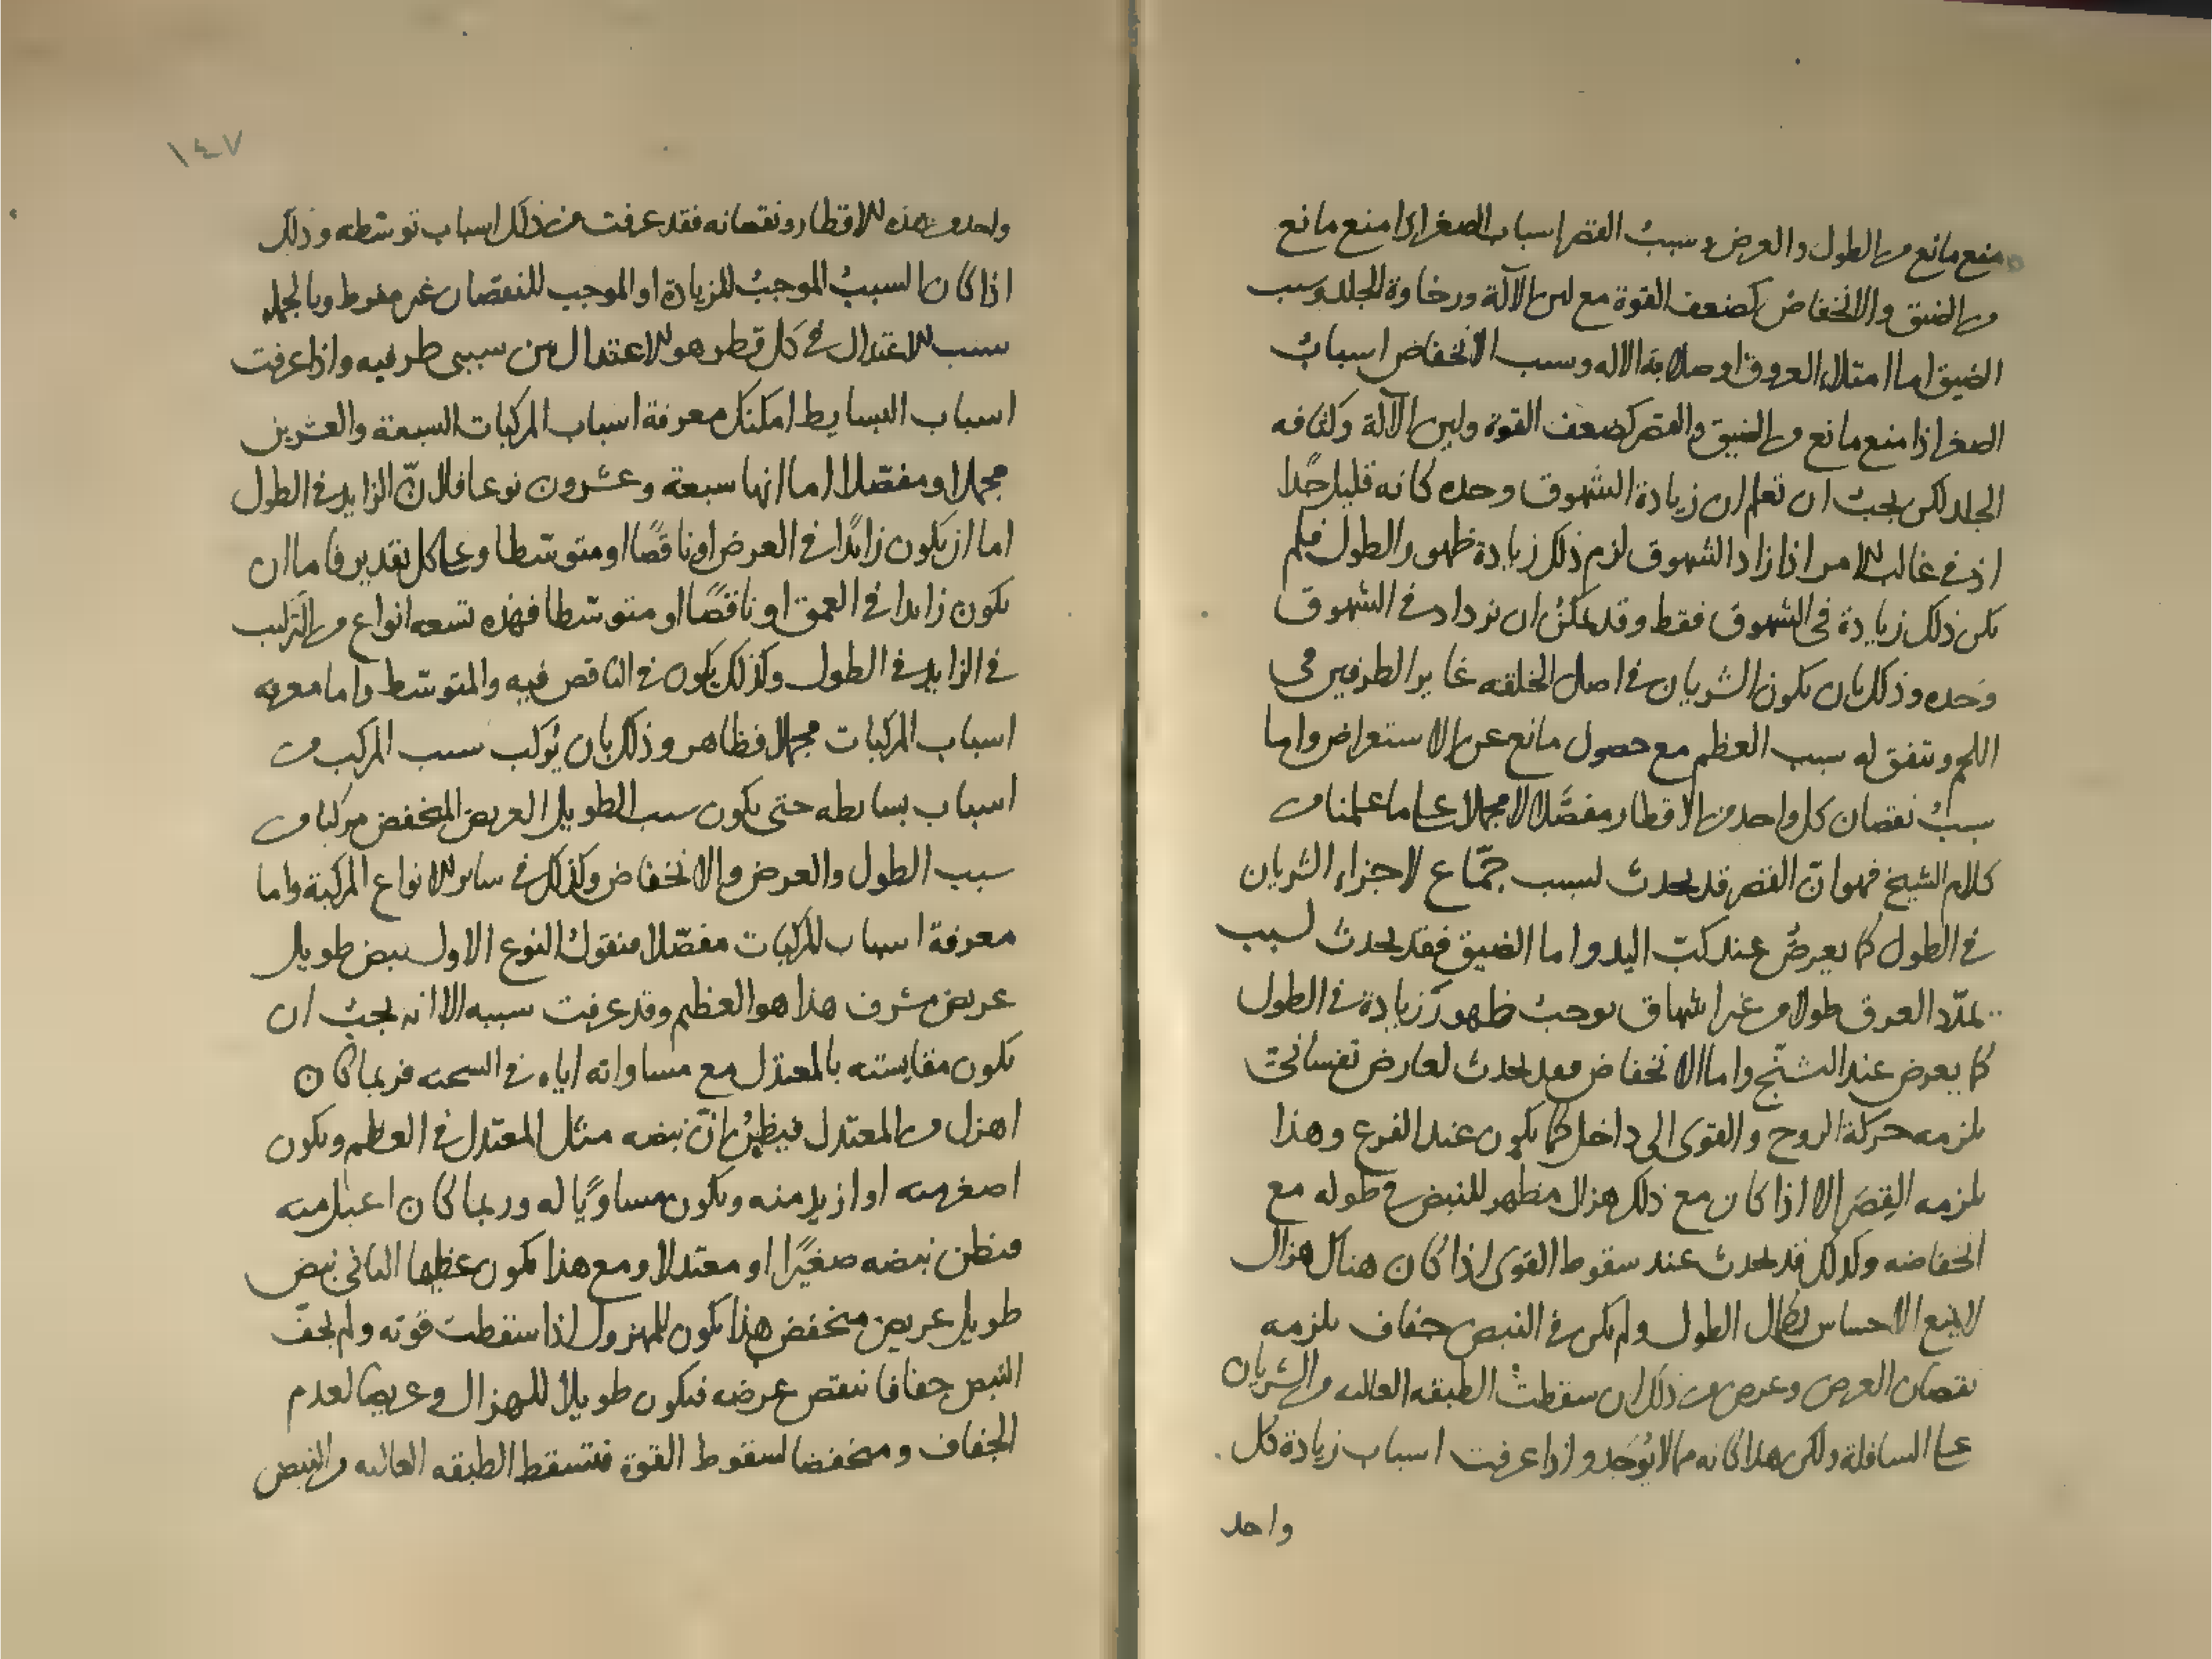 منع مانع من الطول والعرض وسبب القصر اسباب الصغر اذا منع مانع
من الضيق والانخفاض كضعف القوة مع لين الآلة ورخاوة الجلد وسبب
الضيق اما امتلاء العروق او صلابة الاله وسبب الانخفاض اسباب
الصغر اذا منع مانع من الضيق والقصر كضعف القوة ولين الآلة وكثافه
الجلد لكن يجب ان تعلم ان زيادة الشهوق وحده كانه قليل جدا
اذ في غالب الامر اذا زاد الشهوق لزم ذلك زيادة ظهور الطول فلم
يكن ذلك زيادة في الشهوق فقط وقد يمكن ان تزداد في الشهوق
وحده وذلك بان يكون الشريان في اصل الخلقه غاير الطرفين في
اللحم ويتفق له سبب العظم مع حصول مانع عن الاستعراض واما
سبب نقصان كل واحد من الاقطار مفصلا لا مجملا على ما علمنا من
كلام الشيخ فهو ان القصر قد يحدث لسبب جماع لاجزاء الشريان
في الطول كما يعرض عند كب اليد واما الضيق فقد يحدث لسبب
تمدد العرق طولا من غير اشهاق يوجب ظهور زيادة في الطول
كما يعرض عند التشنج واما الانخفاض فقد يحدث لعارض نفساني
يلزمه حركة الروح والقوى الى داخل كما يكون عند الفزع وهذا
يلزمه القصر الا اذا كان مع ذلك هزال مظهر للنبض في طوله مع
انخفاضه وكذلك قد يحدث عند سقوط القوى اذا كان هناك هزال
لا يمنع الاحساس بكمال الطول ولم يكن في النبض جفاف يلزمه
نقصان العرض وعرض من ذلك ان سقطت الطبقه العاليه من الشريان
على السافلة ولكن هذا كانه مما لا يوجد واذا عرفت اسباب زيادة كل
واحد
١٤٧
واحد من هذه الاقطار ونقصانه فقد عرفت من ذلك اسباب توسطه وذلك
اذا كان السبب الموجب للزيادة او الموجب للنقصان غير مفرط وبالجمله
سبب الاعتدال في كل قطر هو الاعتدال بين سببى طرفيه واذا عرفت
اسباب البسايط امكنك معرفة اسباب المركبات السبعة والعشرين
مجملا ومفصلا اما انها سبعة وعشرون نوعا فلان الزايد في الطول
اما ان يكون زائدا في العرض او ناقصا او متوسطا وعلى كل تقدير فاما ان
يكون زايدا في العمق او ناقصا او متوسطا فهذه تسعه انواع من التركيب
في الزايد في الطول وكذلك يكون في الناقص فيه والمتوسط واما معرفه
اسباب المركبات مجملا فظاهر وذلك بان يركب سبب المركب من
اسباب بسايطه حتى يكون سبب الطويل العريض المنخفض مركبا من
سبب الطول والعرض والانخفاض وكذلك في ساير الانواع المركبة واما
معرفة اسباب المركبات مفصلا فنقول النوع الاول نبض طويل
عريض مشرف هذا هو العظيم وقد عرفت سببه الا انه يجب ان
يكون مقايسته بالمعتدل مع مساواته اياه في السحنه فربما كان
اهزل من المعتدل فيظن ان نبضه مثل المعتدل في العظم ويكون
اصغر منه او ازيد منه ويكون مساويا له وربما كان اعبل منه
فيظن نبضه صغيرا او معتدلا ومع هذا يكون عظيما الثاني نبض
طويل عريض منخفض هذا يكون للمهزول اذا سقطت قوته ولم يجف
النبض جفافا ينقص عرضه فيكون طويلا للهزال وعريضا لعدم
الجفاف ومنخفضا لسقوط القوة فتسقط الطبقه العاليه من النبض